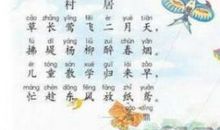 村 居
cǎo zhǎng yīng fēi èr yuè tiān
草 长 莺 飞 二 月 天，
fú dī yáng liǔ zuì chūn yān
拂 堤 杨 柳 醉 春 烟。
ér tóng sàn xué guī lái zǎo
儿 童 散 学 归 来 早，
máng chèn dōng fēng fàng zhǐ yuān
忙 趁 东 风 放 纸 鸢。